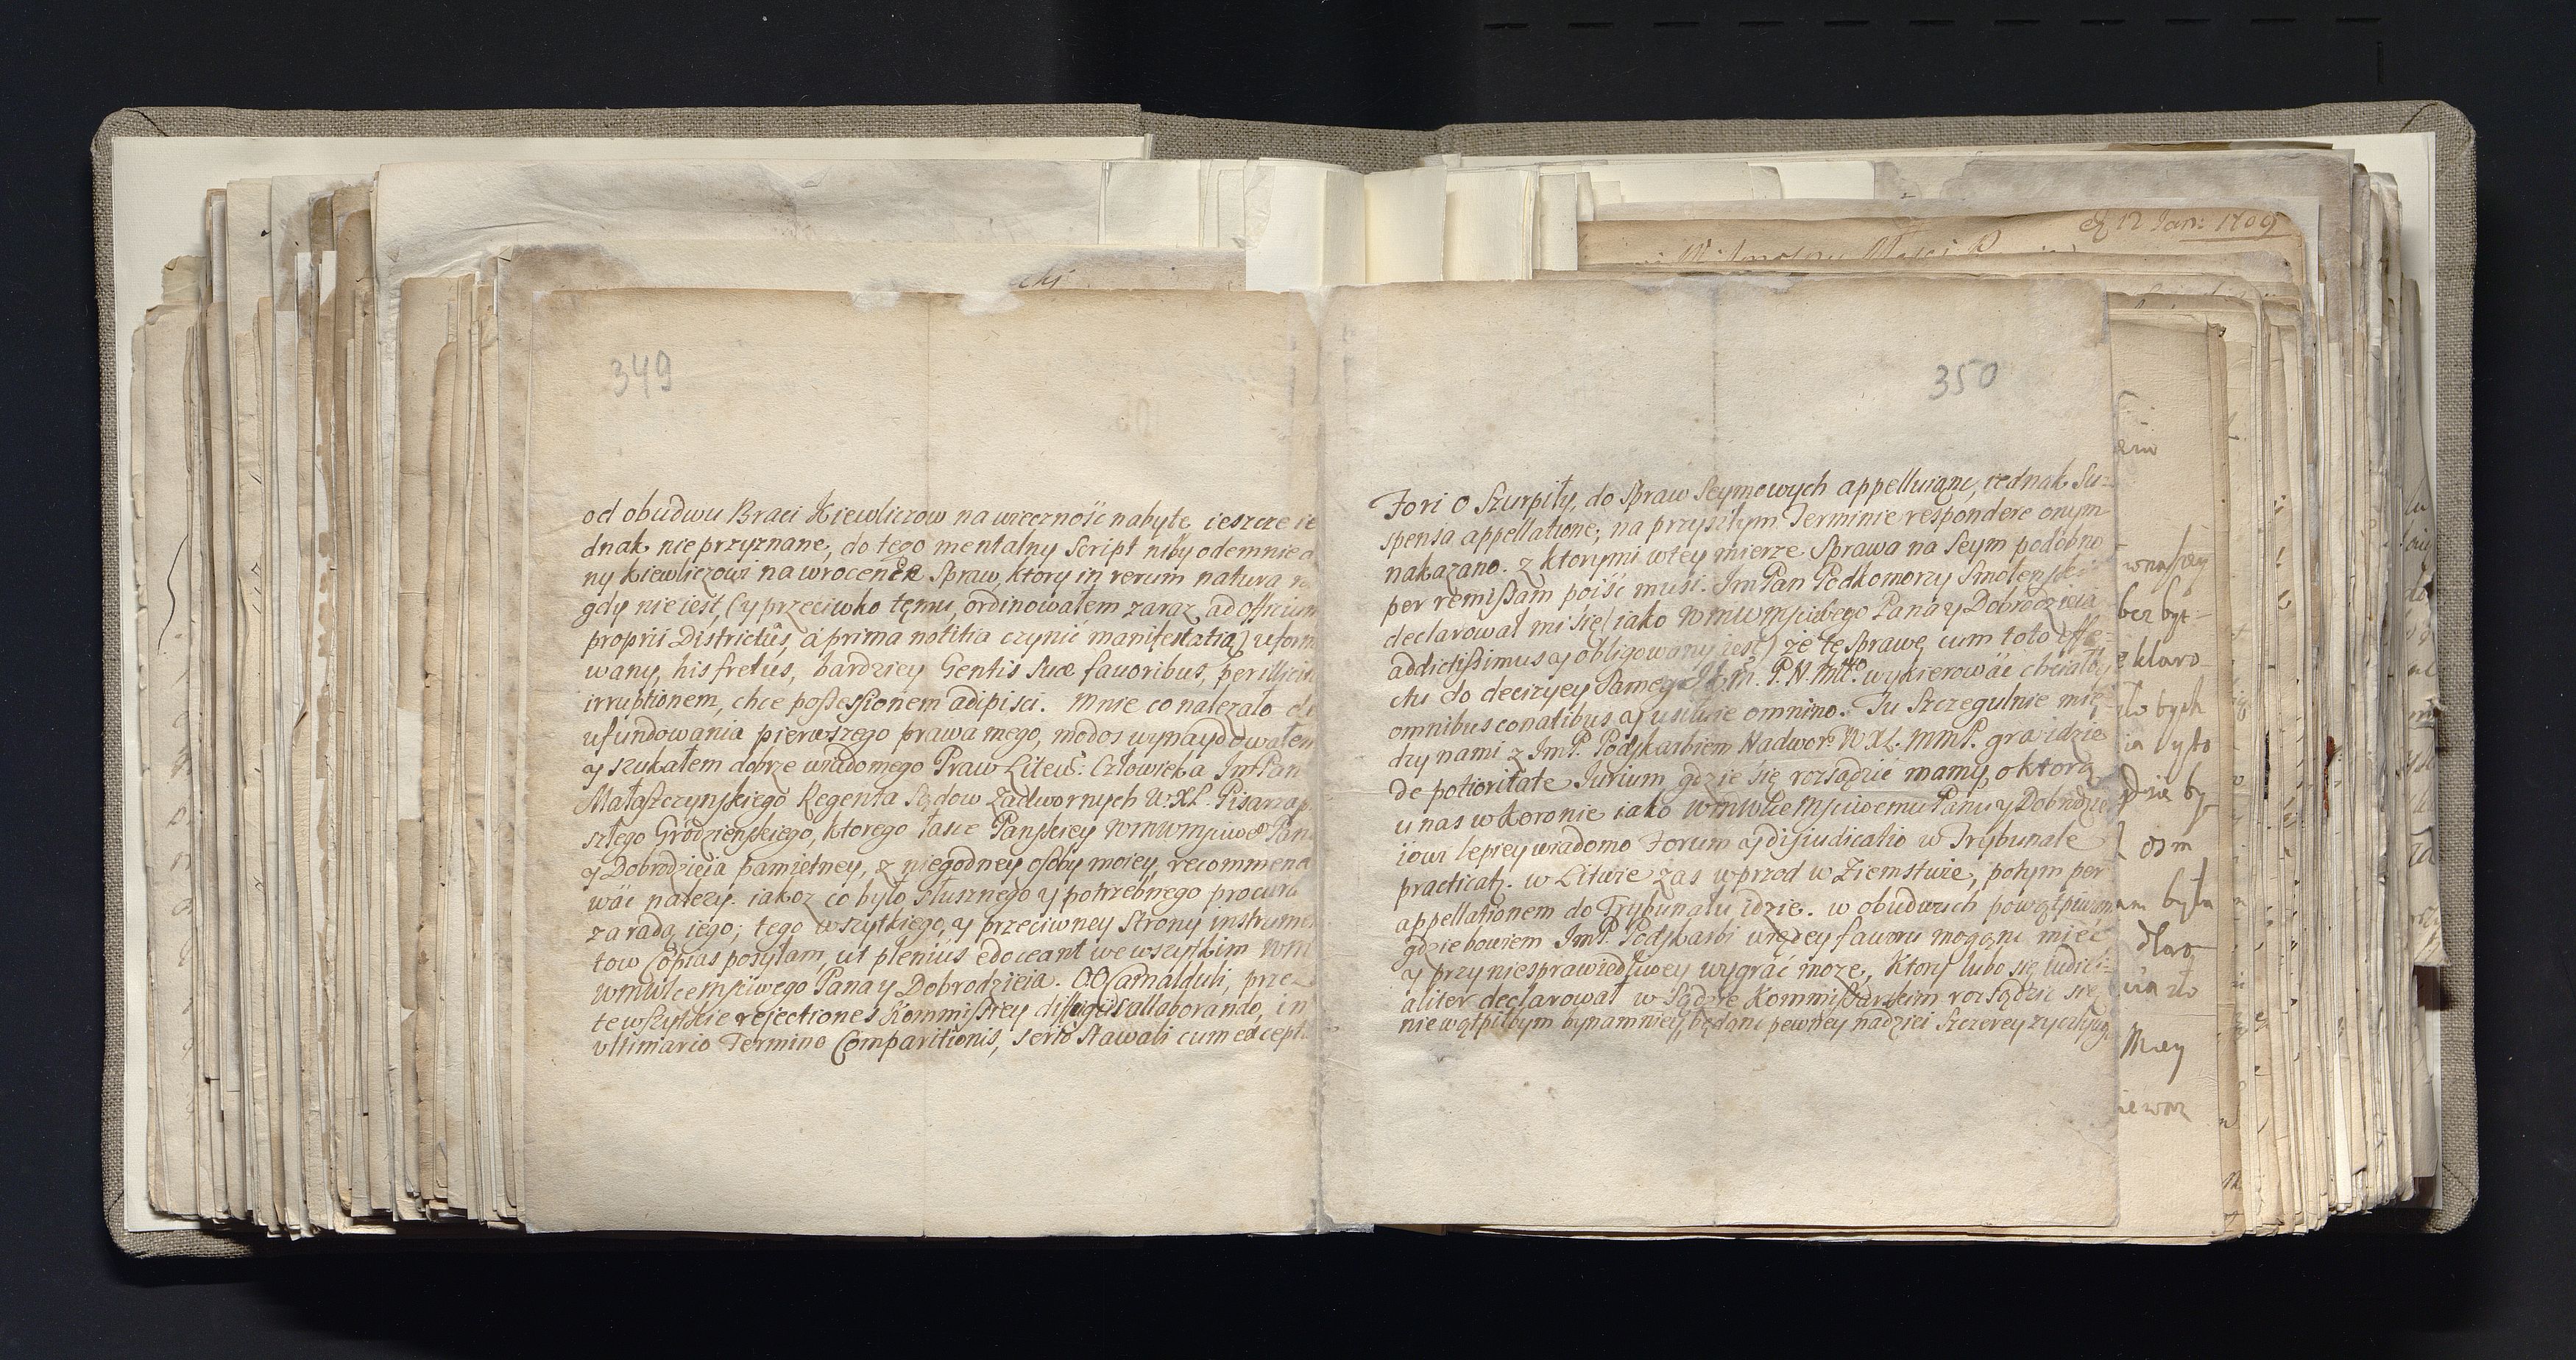 349
od obudwu Braci Kiewliczow na wieczność nabyte ieszcze ie
dnak nie przyznane, do tego mentalny Script niby odemnie
ny Kiewliczowi na wrocenie Spraw, ktory in rerum natura
gdy nie iest, (y przeciwko temu, ordinowałem zaraz ad officium
proprii Districtûs, à prima notitia czynić manifestatią) uform
wany, his fretus, bardziey Gentis Suæ favoribus, per illicitam
irruptionem, chce possessionem adipisci. Mnie co należało do
ufundowania pierwszego prawa mego, modos wynaydowałem
y szukałem dobrze wiadomego Praw Litew: Człowieka Im Pan
Małaszczynskiego Regenta Sądow Zadwornych W.X.L. Pisarza
szłego Grodzienskiego, ktorego łasce Panskiey WMWMsciwo Pan
y Dobrodzieia pamiętney, z niegodney osoby moiey, recommend
wać należy. iakoz co było słusznego y potrzebnego procura
za radą iego; tego wszytkiego, y przeciwney Strony instrumen
tow Copias posyłam, ut pleniùs edoceant we wszytkim WM
WMWCe Msciwego Pana y Dobrodzieia. OO Camalduli, prze
te wszytkie rejectiones Kommissiey diffugiis allaborando, in
ultimario Termino Comparitionis, serio stawali cum except
350
Fori o Szurpiły, do Spraw Seymowych appelluiąc, iednak Su-
spensa appellatione, na przyszłym Terminie respondere onym
nakazano. z ktorymi w tey mierze Sprawa na Seym podobno
per remissam poiść musi. Im Pan Podkomorzy Smolenski
declarował mi się (iako WMWMsciwego Pana y Dobrodzieia
addictissimus y obligowany iest) że tę sprawę cum toto effe-
ctu do decizyey Samego P.N.Mtto. wykierować chciałby
omnibus conatibus y usiłuie omnino. Tu Szczegulnie mię-
dzy nami z ImP. Podskarbiem Nadwor. W.X.L. MMP. gra idzie
de potioritate Jurium gdzie się rozsądzić mamy, o ktorą
u nas w Koronie iako WMWCe Msciwemu Panu y Dobrodzie
iowi lepiey wiadomo Forum y disiudicatio w Trybunale
practicatz. w Litwie zas wprzod w Ziemstwie, potym per
appellationem do Trybunału idzie. w obudwuch powątpiwam
gdzie bowiem ImP. Podskarbi więcey faworu mogąc mieć
y przy niesprawiedliwey wygrać może, Ktory lubo się iudici-
aliter declarował w Sądzie Kommissarskim rozsądzic się
nie wątpiłbym bynamniey, będąc pewney nadziei Szczerey życzliwą
12 Jan: 1709
wnaszey
bez byt-
klaro
bych
osm
była
dla
Mey